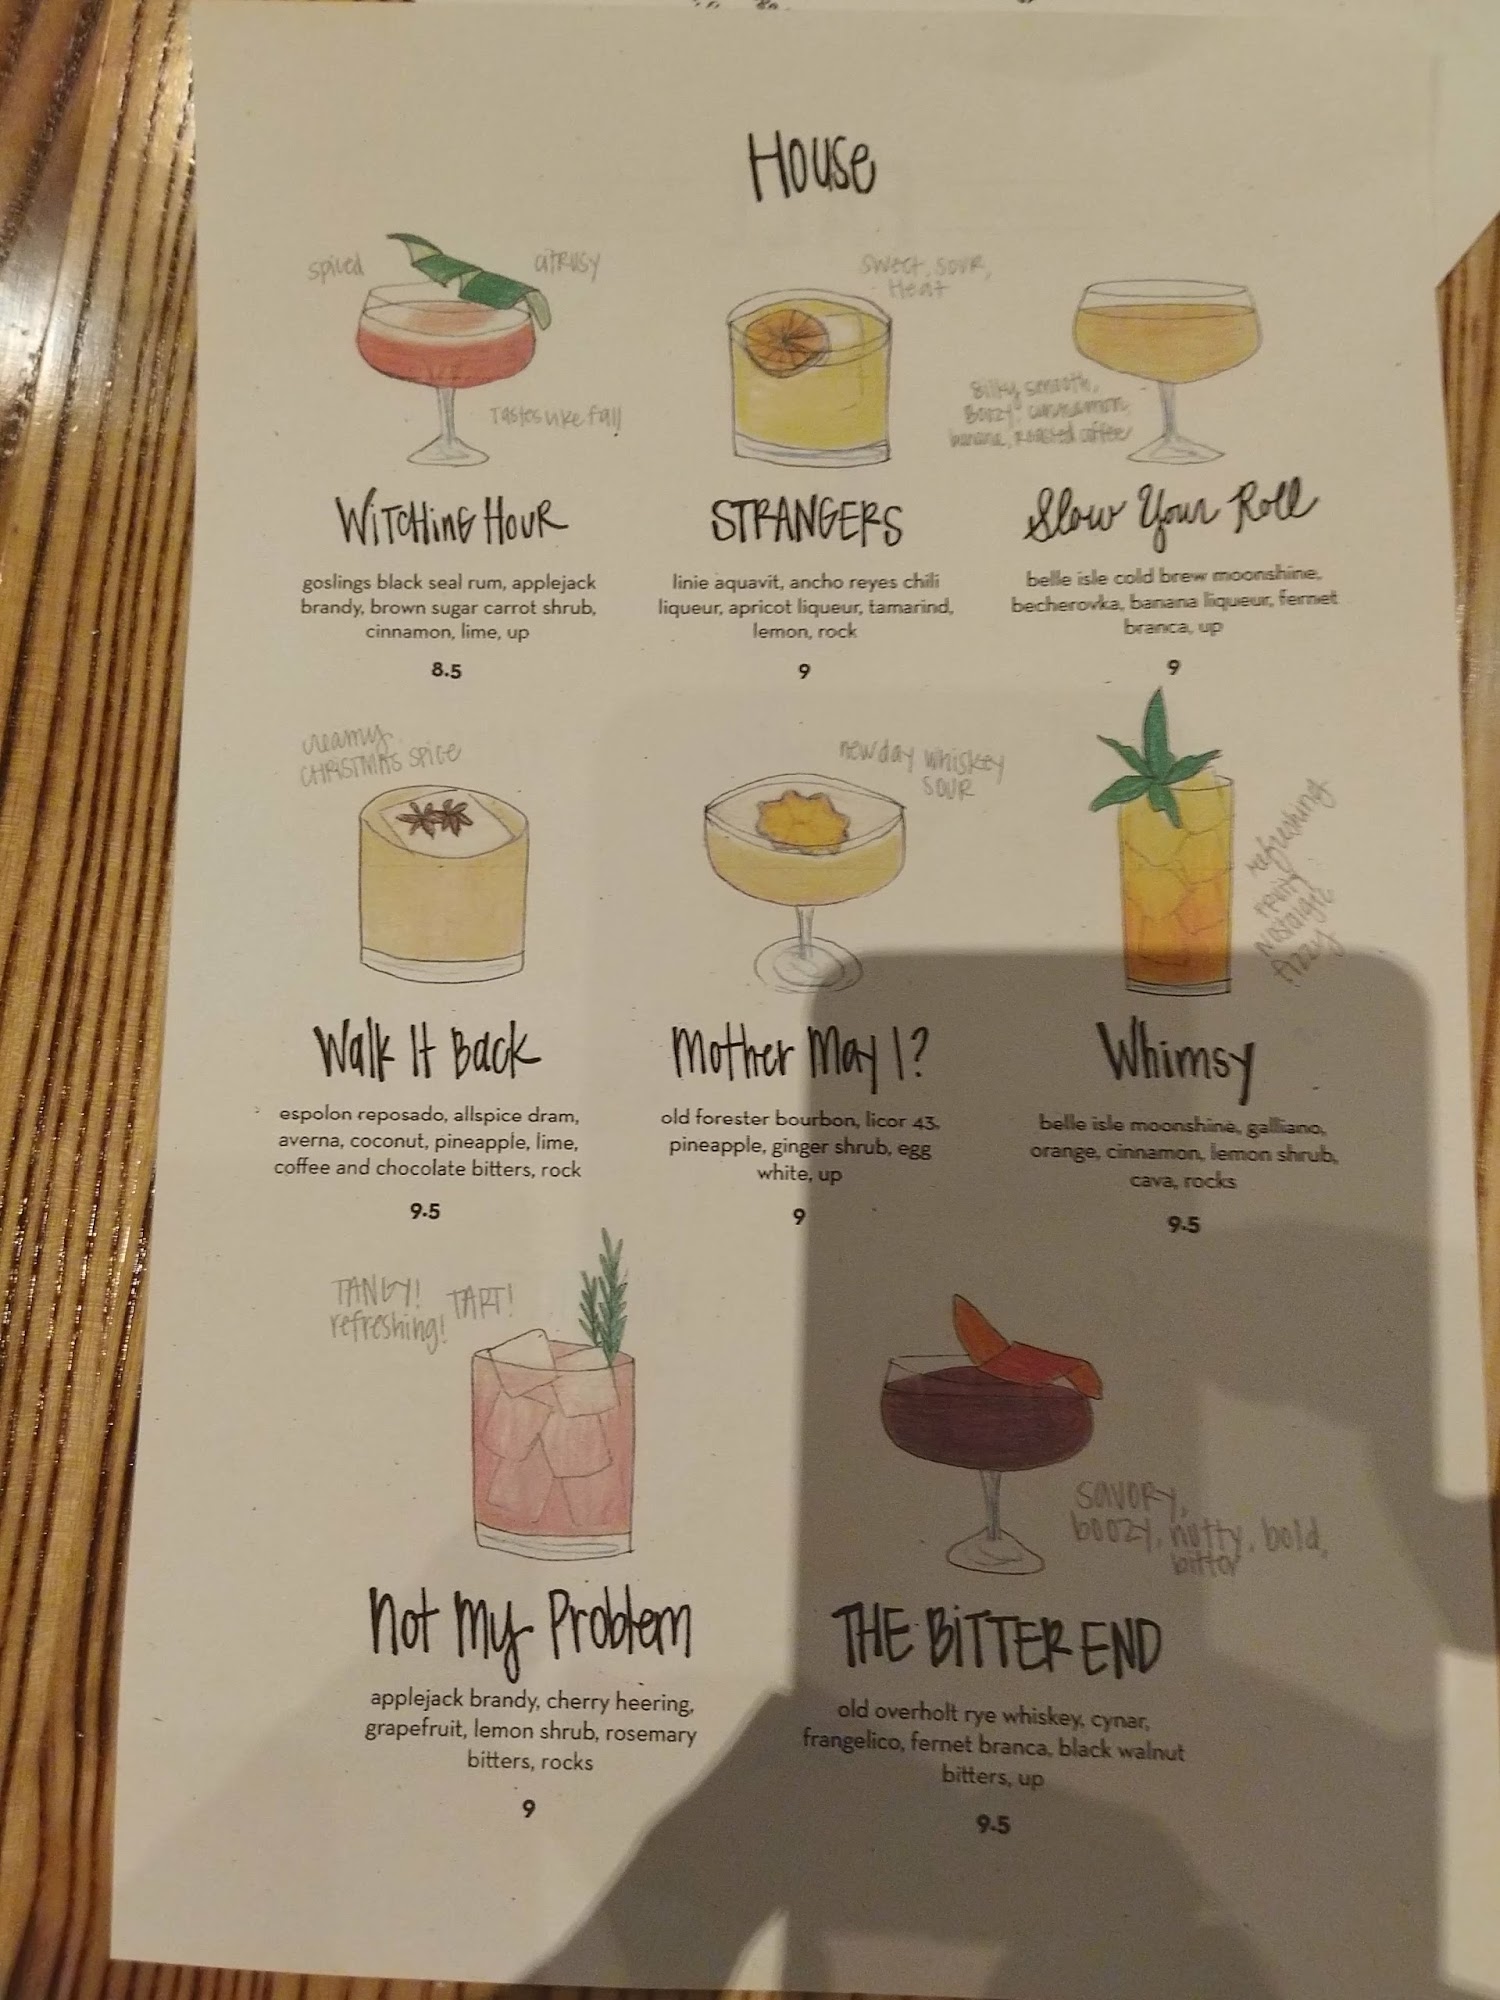 House
spiced
citrusy
Tastes like fall
WITCHING HOUR
goslings black seal rum, applejack
brandy, brown sugar carrot shrub,
cinnamon, lime, up
8.5
sweet, sour,
Heat
STRANGERS
linie aquavit, ancho reyes chili
liqueur, apricot liqueur, tamarind,
lemon, rock
9
Silky, smooth,
Boozy: cinnamon,
banana, roasted coffee
Slow Your Roll
belle isle cold brew moonshine,
becherovka, banana liqueur, fernet
branca, up
9
creamy
CHRISTMAS spice
Walk It Back
espolon reposado, allspice dram,
averna, coconut, pineapple, lime,
coffee and chocolate bitters, rock
9.5
new day whiskey
SOUR
Mother May I?
old forester bourbon, licor 43,
pineapple, ginger shrub, egg
white, up
9
refreshing
FRUITY
Nostalgic
fizzy
Whimsy
belle isle moonshine, galliano,
orange, cinnamon, lemon shrub,
cava, rocks
9.5
TANGY! TART!
refreshing!
Not My Problem
applejack brandy, cherry heering,
grapefruit, lemon shrub, rosemary
bitters, rocks
9
SAVORY,
boozy, nutty, bold,
bitter
THE BITTER END
old overholt rye whiskey, cynar,
frangelico, fernet branca, black walnut
bitters, up
9.5